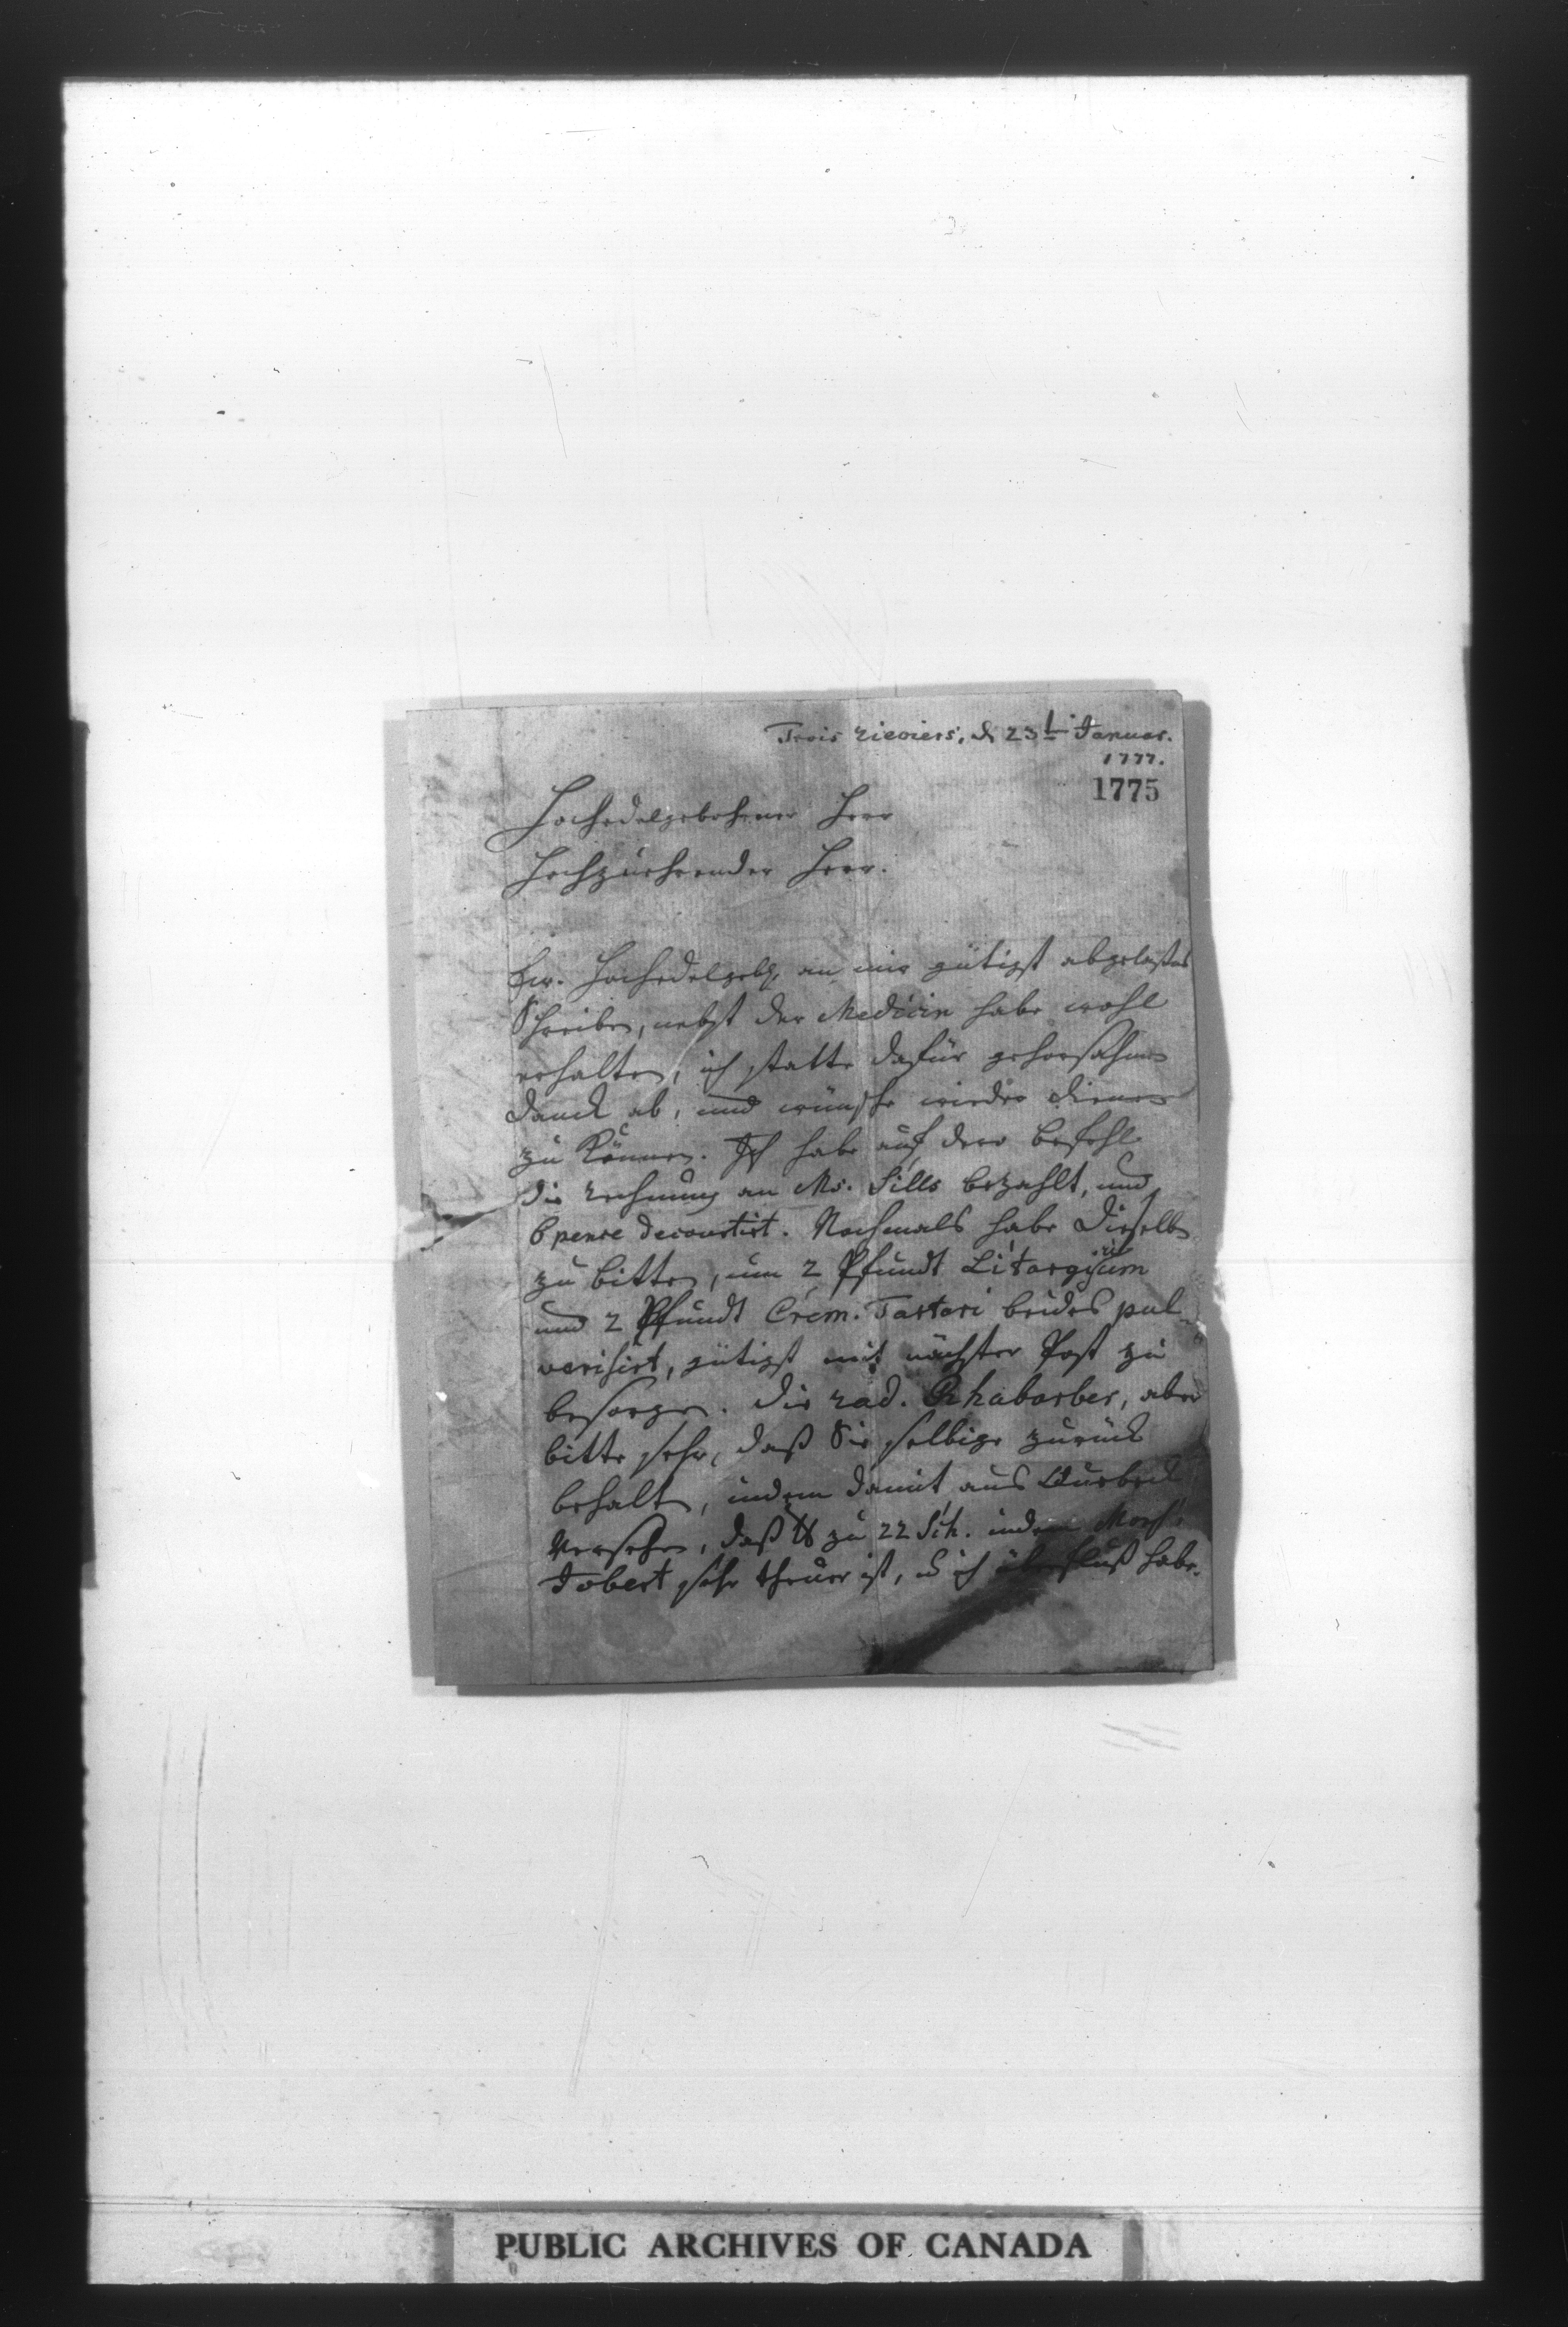 Trois rieviers, d 23t Januar.
1777.
1775
Hochedelgebohrner Herr
Hochzuehrender Herr.
Ew. Hochedelgeb. an mir gütigst abgelaßnes
Schreiben, nebst der Medicin habe wohl
erhalten, ich statte dafür gehorsahmen
Danck ab, und wünsche wieder dienen
zu können. Ich habe auf dero Befehl
die rechnung an Ms. Sills bezahlt, und
6 pence decourtirt. Nochmals habe Dieselben
zu bitten, um 2 Pfundt Litargirium
und 2 Pfundt Crem. Tartari beides pul
verisirt, gütigst mit nächster Post zu
besorgen. Die rad. Rhabarber, aber
bitte sehr, daß Sie selbige zurück
behalten, indem damit aus Quebeck
versehen, daß ℔ zu 22 Sch. indem
Jobert sehr theuer ist, u ich überfluß habe.
PUBLIC ARCHIVES OF CANADA